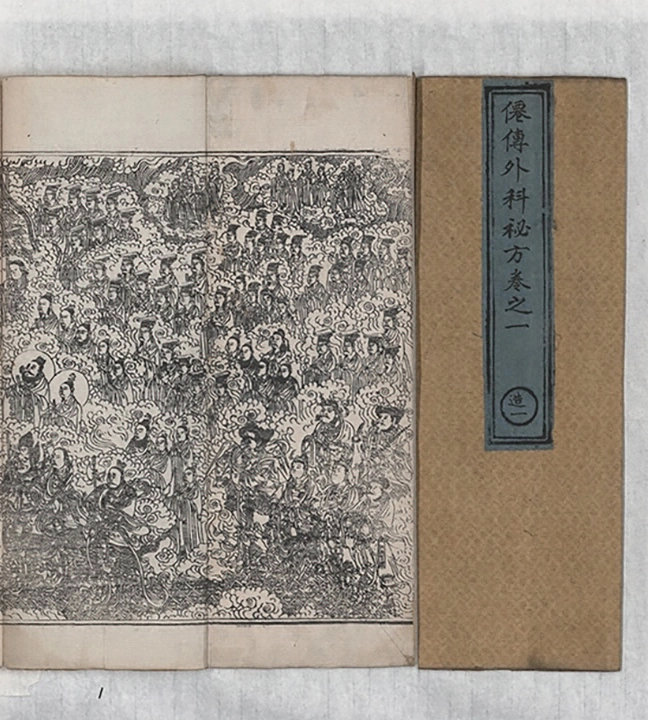 僊傳外科祕方卷之一
造一